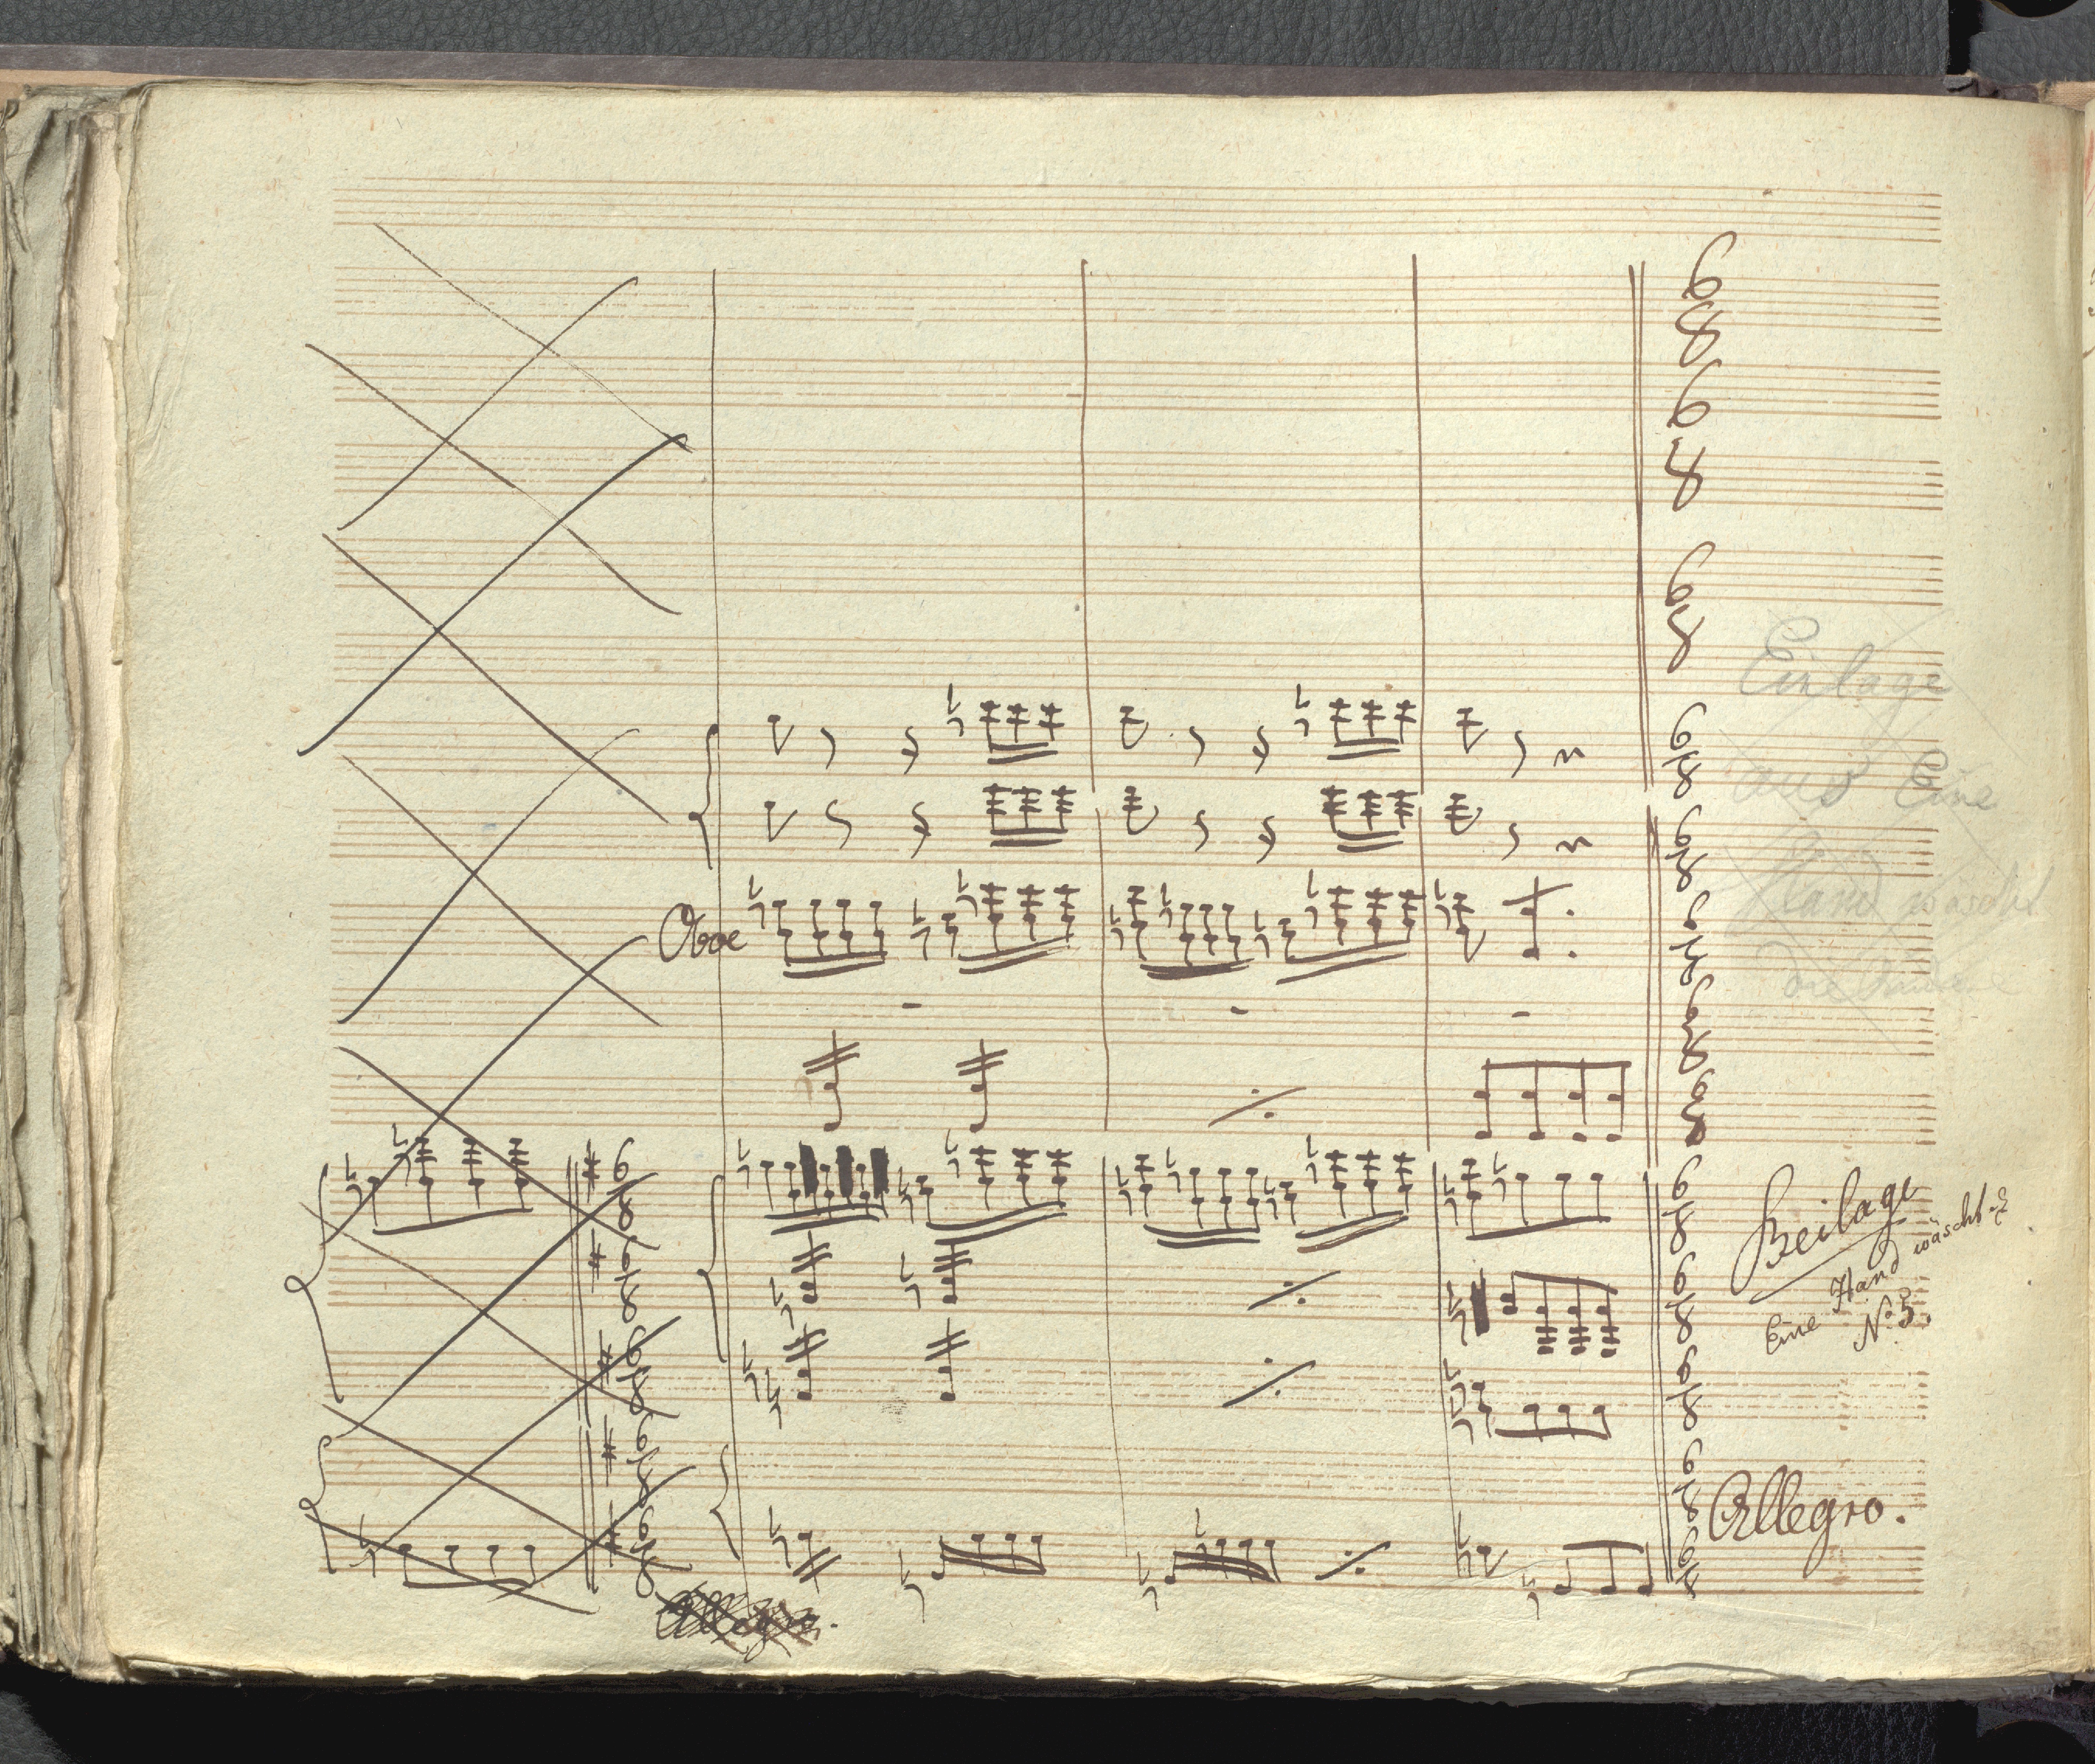 Einlage
aus Eine
Hand wascht
die andere
Oboe
Beilage
Eine Hand wäscht
No 5.
Allegro.
Allegro.